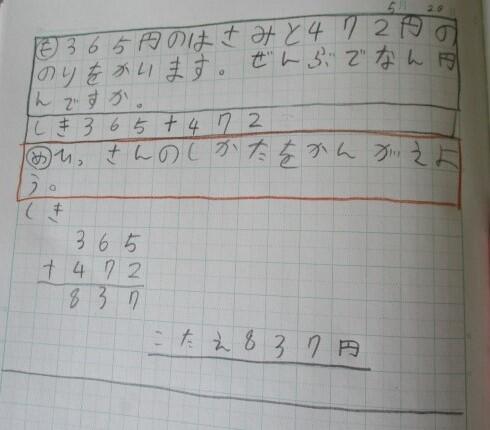 5 20
も365円のはさみと472円の
のりをかいます。ぜんぶでなん円
んですか。
しき365+472
めひっさんのしかたをかんがえよ
う。
しき
365
+472
837
こたえ837円